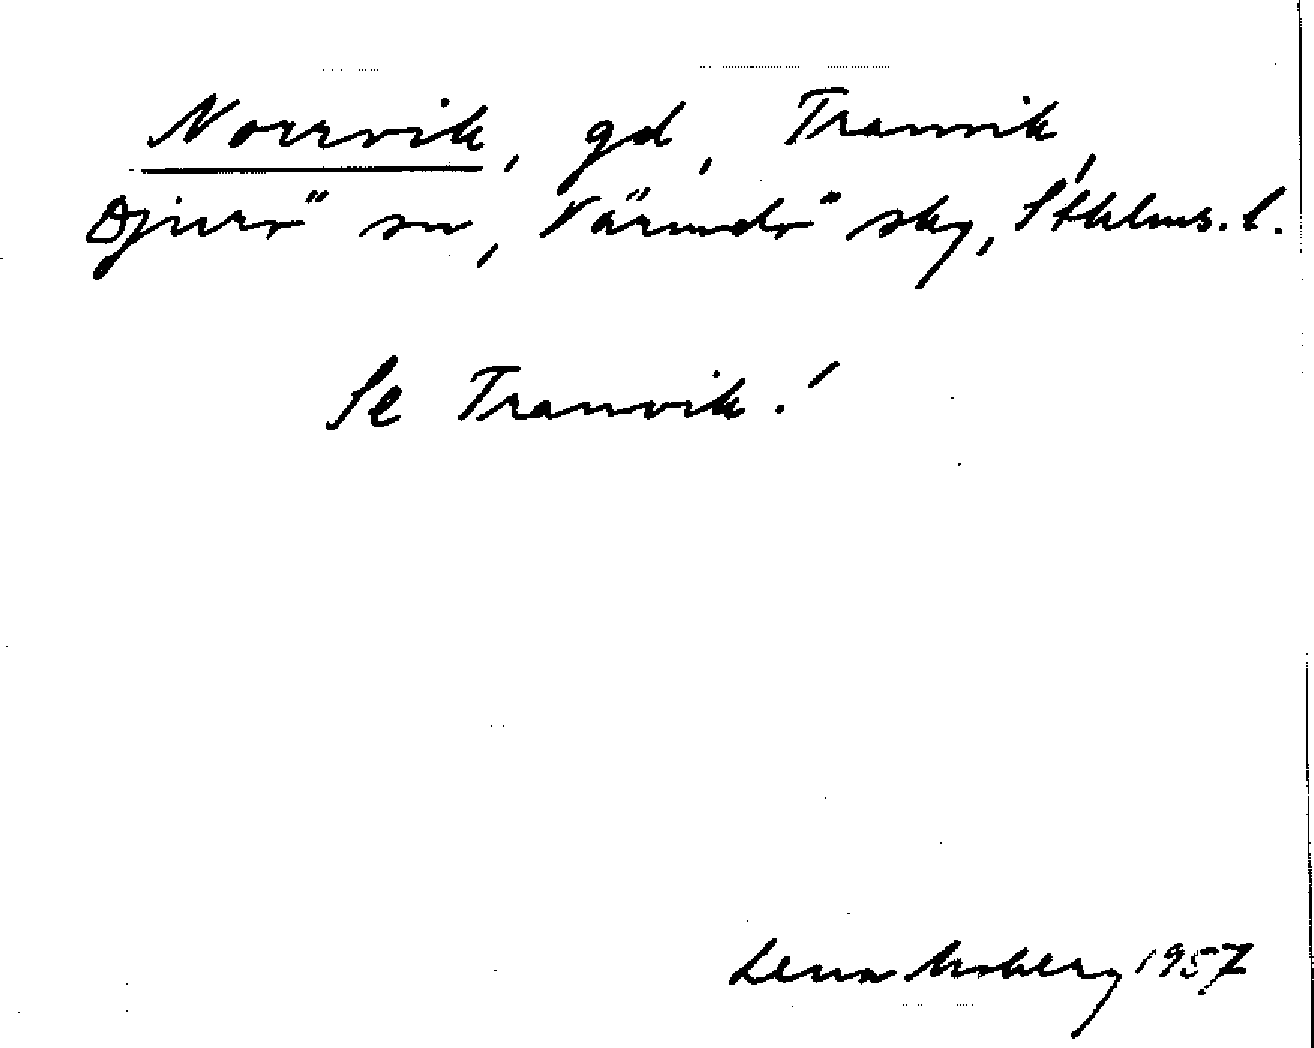 Norrvik, gd, Tranvik,
Djurö sn, Värmdö skg, Sthlms. l.
Se Tranvik!
Lena Moberg 1957